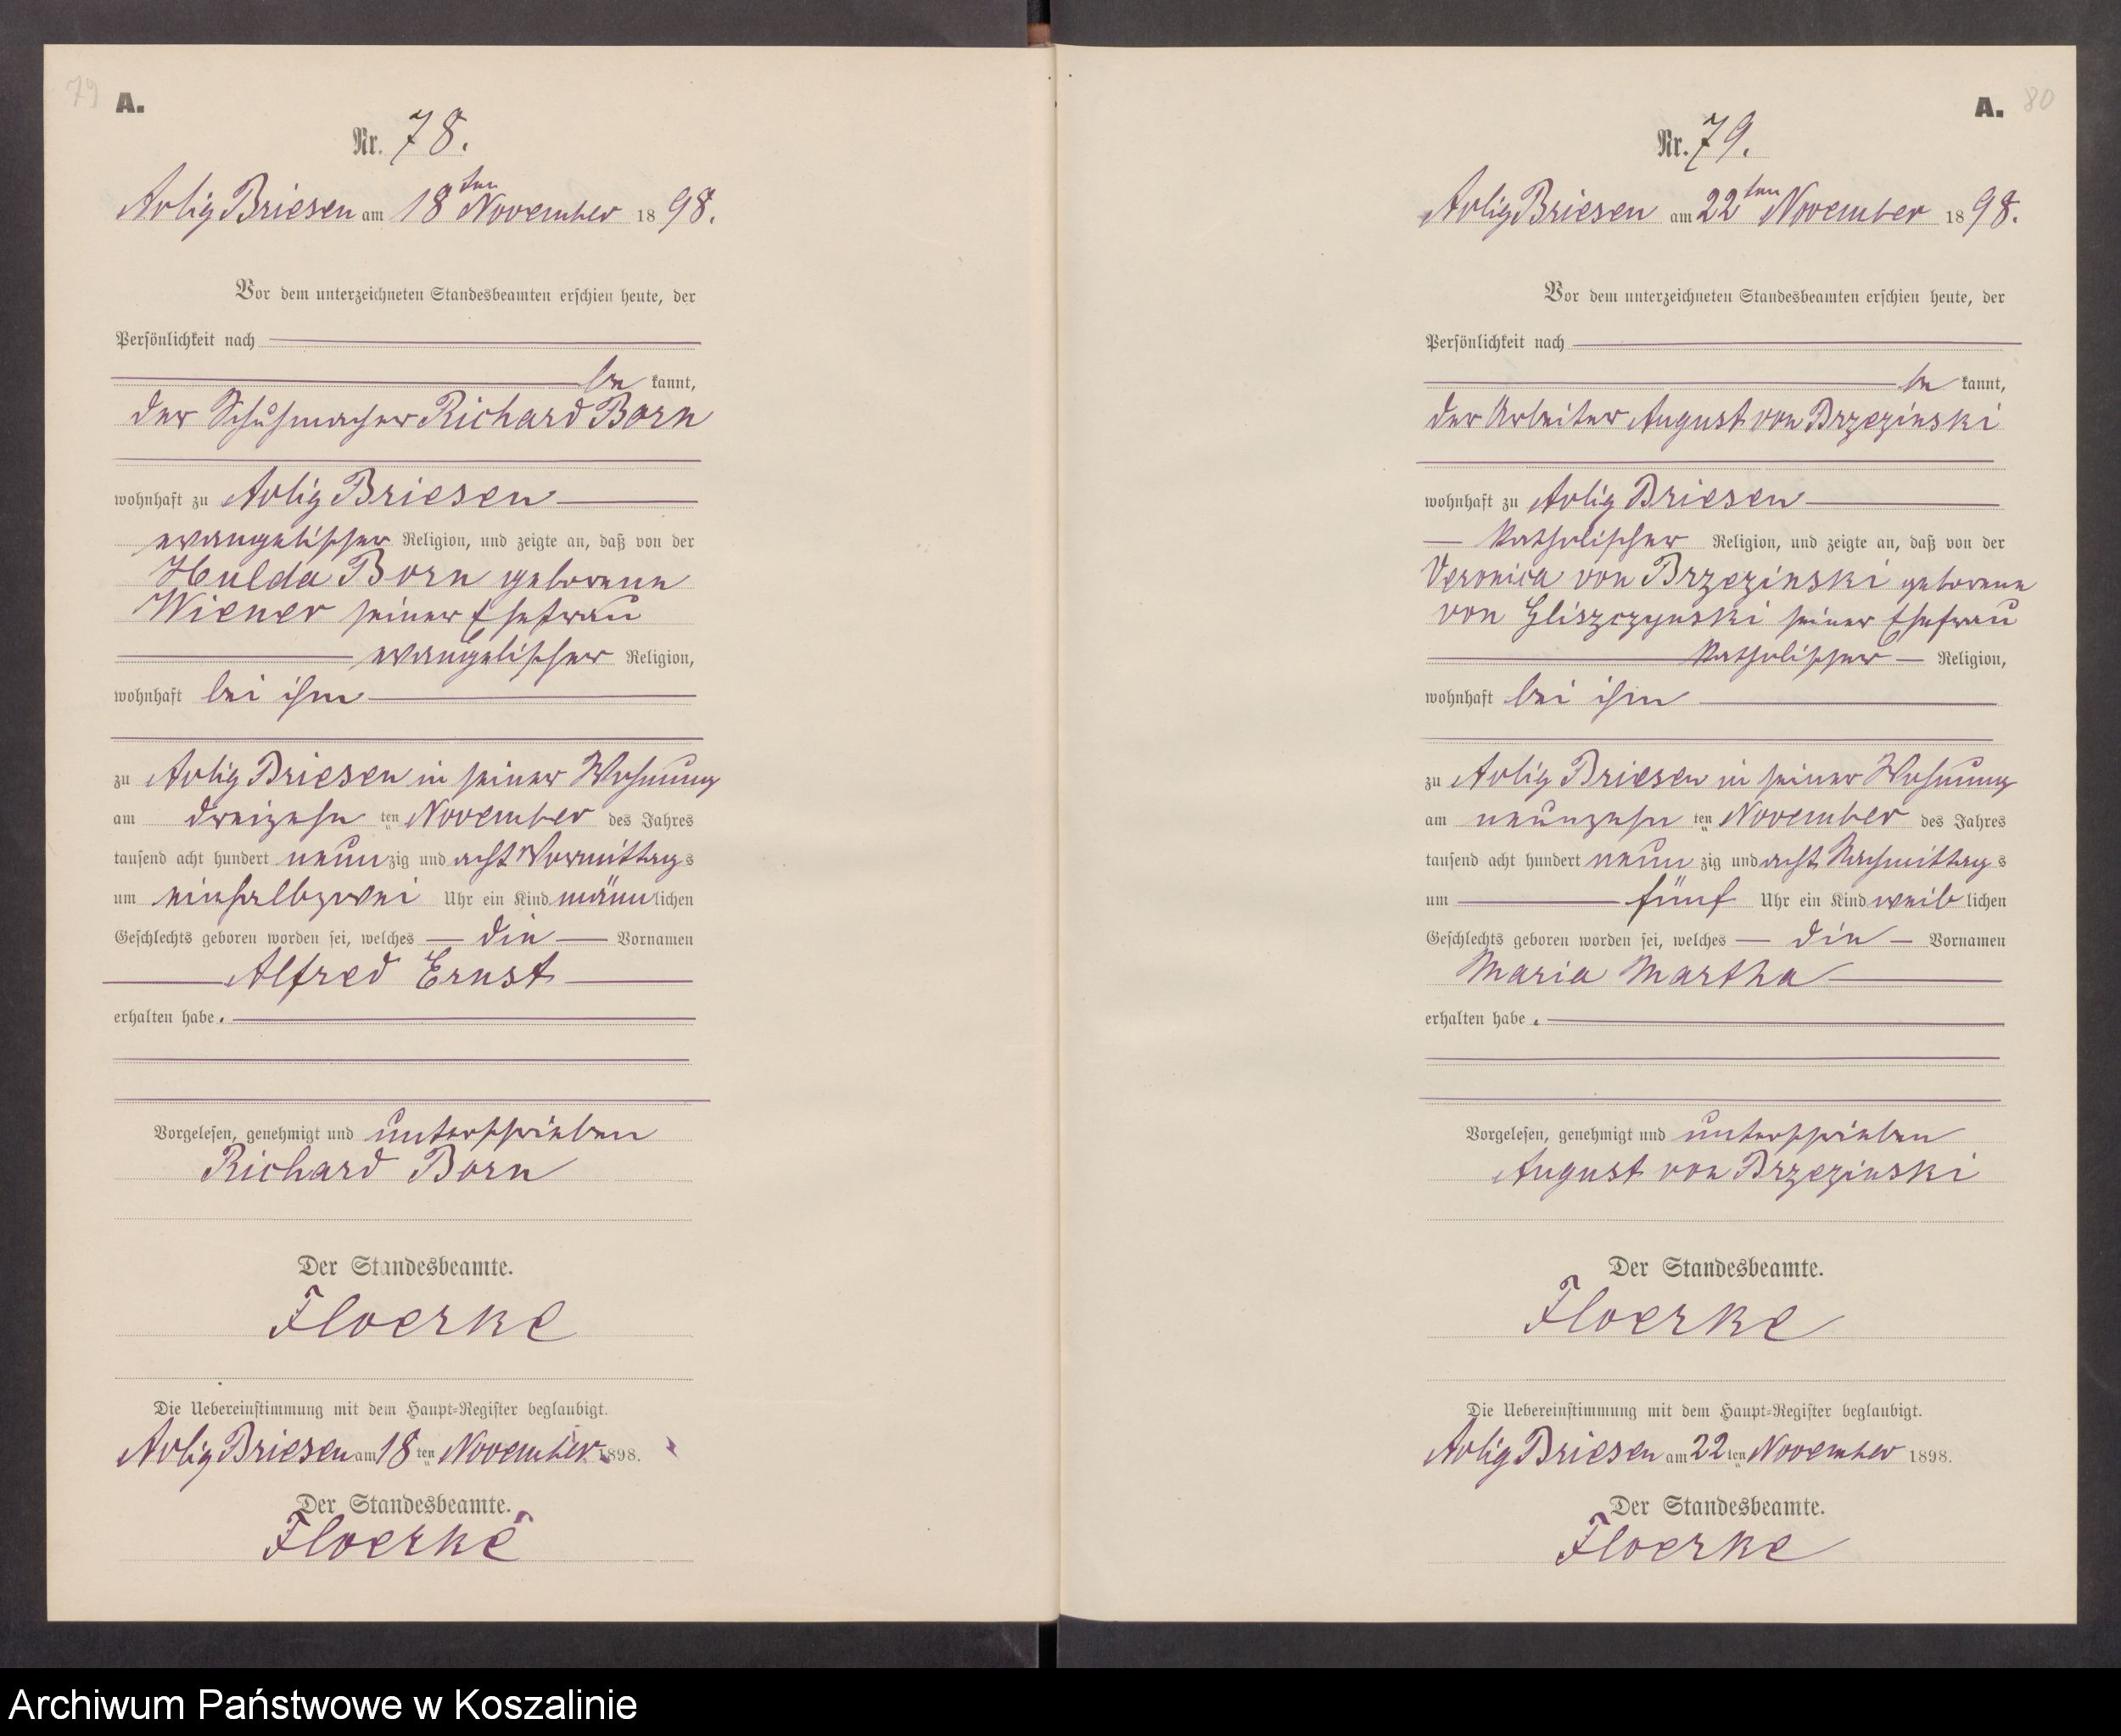 79
A.
Nr. 78.
Adlig Briesen am 18ten November 1898.
Vor dem unterzeichneten Standesbeamten erschien heute, der
Persönlichkeit nach
be kannt,
der Schuhmacher Richard Born
wohnhaft zu Adlig Briesen
evangelischer Religion, und zeigte an, daß von der
Hulda Born geborene
Wiener seiner Ehefrau
evangelischer Religion,
wohnhaft bei ihm
zu Adlig Briesen in seiner Wohnung
am dreizehn ten November des Jahres
tausend acht hundert neunzig und acht Vormittags
um einhalbzwei Uhr ein Kind männlichen
Geschlechts geboren worden sei, welches die Vornamen
Alfred Ernst
erhalten habe.
Vorgelesen, genehmigt und unterschrieben
Richard Born
Der Standesbeamte.
Floerke
Die Uebereinstimmung mit dem Haupt-Register beglaubigt.
Adlig Briesen am 18ten November 1898.
Der Standesbeamte.
Floerke
A. 80
Nr. 79.
Adlig Briesen am 22ten November 1898.
Vor dem unterzeichneten Standesbeamten erschien heute, der
Persönlichkeit nach
be kannt,
der Arbeiter August von Brzezinski
wohnhaft zu Adlig Briesen
katholischer Religion, und zeigte an, daß von der
Veronica von Brzezinski geborene
von Gliszczynski seiner Ehefrau
katholischer Religion,
wohnhaft bei ihm
zu Adlig Briesen in seiner Wohnung
am neunzehn ten November des Jahres
tausend acht hundert neun zig und acht Nachmittags
um fünf Uhr ein Kind weiblichen
Geschlechts geboren worden sei, welches die Vornamen
Maria Martha
erhalten habe.
Vorgelesen, genehmigt und unterschrieben
August von Brzezinski
Der Standesbeamte.
Floerke
Die Uebereinstimmung mit dem Haupt-Register beglaubigt.
Adlig Briesen am 22ten November 1898.
Der Standesbeamte.
Floerke
Archiwum Państwowe w Koszalinie